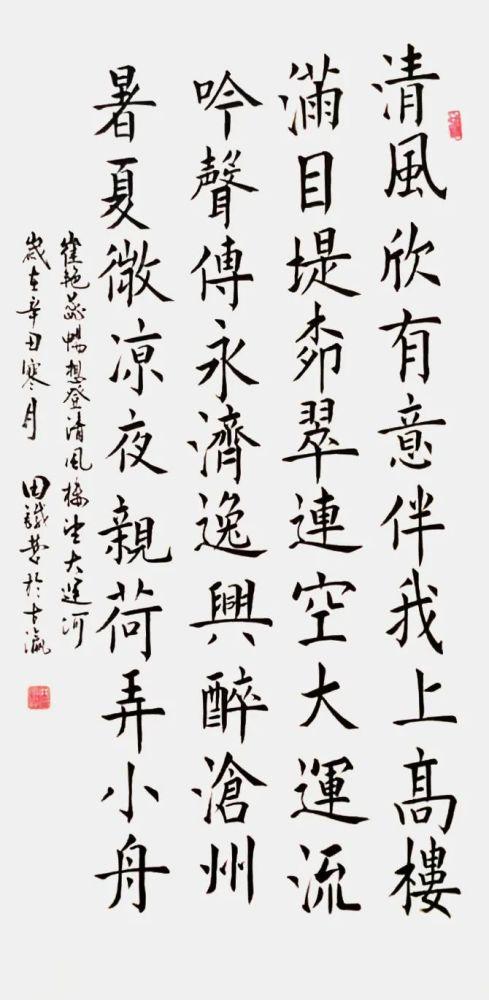 清風欣有意伴我上髙樓
滿目堤栁翠連空大運流
吟聲傳永濟逸興醉滄州
暑夏微凉夜親荷弄小舟
崔艳蕊暢想登清風樓望大運河
歲在辛丑寒月 田鐵於古瀛